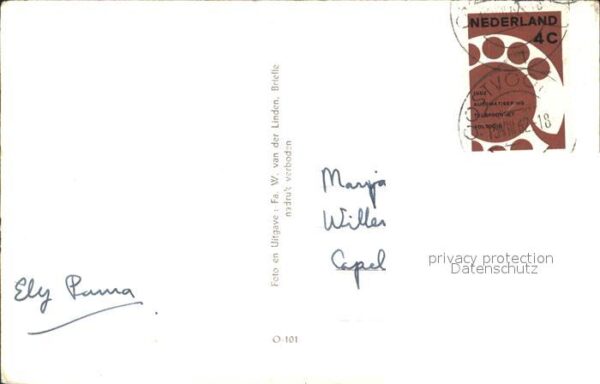 NEDERLAND
4C
1962
AUTOMATISERING
TELEFOONNET
VOLTOOID
OOSTVOORNE
Foto en Uitgave: Fa. W. van der Linden, Brielle
nadruk verboden
Marja
Willer
Capel
privacy protection
Datenschutz
Ely Pama
O-101